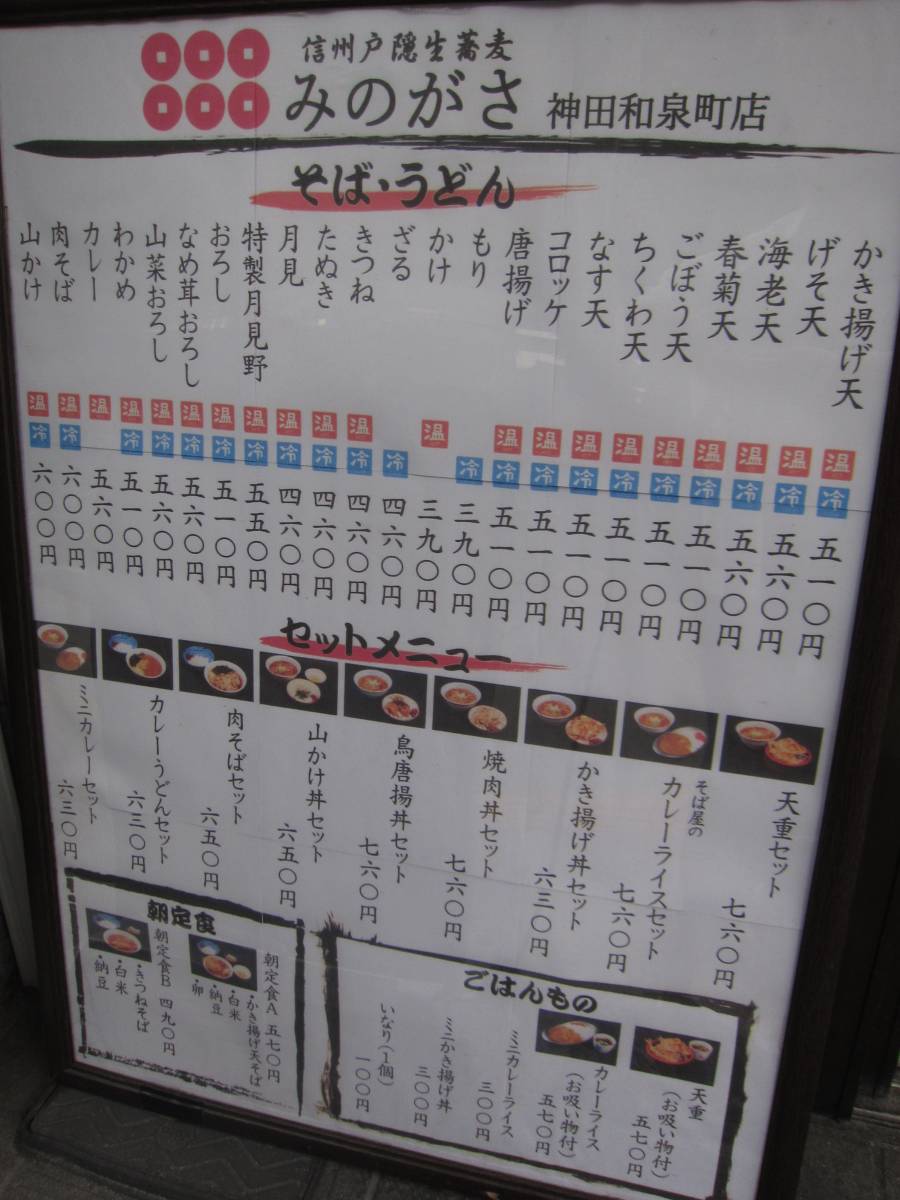 信州戸隠生蕎麦
みのがさ 神田和泉町店
そば・うどん
かき揚げ天 温 冷 五一〇円
げそ天 温 冷 五六〇円
海老天 温 冷 五六〇円
春菊天 温 冷 五一〇円
ごぼう天 温 冷 五一〇円
ちくわ天 温 冷 五一〇円
なす天 温 冷 五一〇円
コロッケ 温 冷 五一〇円
唐揚げ 温 冷 五一〇円
もり 冷 三九〇円
かけ 温 三九〇円
ざる 冷 四六〇円
きつね 温 冷 四六〇円
たぬき 温 冷 四六〇円
月見 温 冷 四六〇円
特製月見野 温 冷 五五〇円
おろし 温 冷 五一〇円
なめ茸おろし 温 冷 五六〇円
山菜おろし 温 冷 五六〇円
わかめ 温 冷 五一〇円
カレー 温 五六〇円
肉そば 温 冷 六〇〇円
山かけ 温 冷 六〇〇円
セットメニュー
天重セット 七六〇円
そば屋の
カレーライスセット 七六〇円
かき揚げ丼セット 六三〇円
焼肉丼セット 七六〇円
鳥唐揚丼セット 七六〇円
山かけ丼セット 六五〇円
肉そばセット 六五〇円
カレーうどんセット 六三〇円
ミニカレーセット 六三〇円
ごはんもの
天重
(お吸い物付)
五七〇円
カレーライス
(お吸い物付)
五七〇円
ミニカレーライス
三〇〇円
ミニかき揚げ丼
三〇〇円
いなり(1個)
一〇〇円
朝定食
朝定食A 五七〇円
・かき揚げ天そば
・白米
・納豆
・卵
朝定食B 四九〇円
・きつねそば
・白米
・納豆